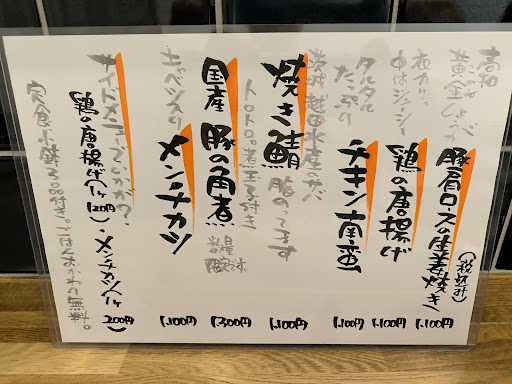 高知
黄金しょうが
豚肩ロースの生姜焼き
(2枚付)
1.100円
衣カリッ
中はジューシー
鶏の唐揚げ
1.100円
タルタル
たっぷり
チキン南蛮
1.100円
茨城 越田水産のサバ
焼き鯖
脂のってます
1.100円
トロトロ。煮玉子付き
国産 豚の角煮
数量
限定です。
1.300円
キャベツ入り
メンチカツ
1.100円
サイドメニューでいかが?
鶏の唐揚げ1ヶ
120円)
・メンチカツ1ヶ
200円)
定食小鉢3品付き。ごはんおかわり無料。